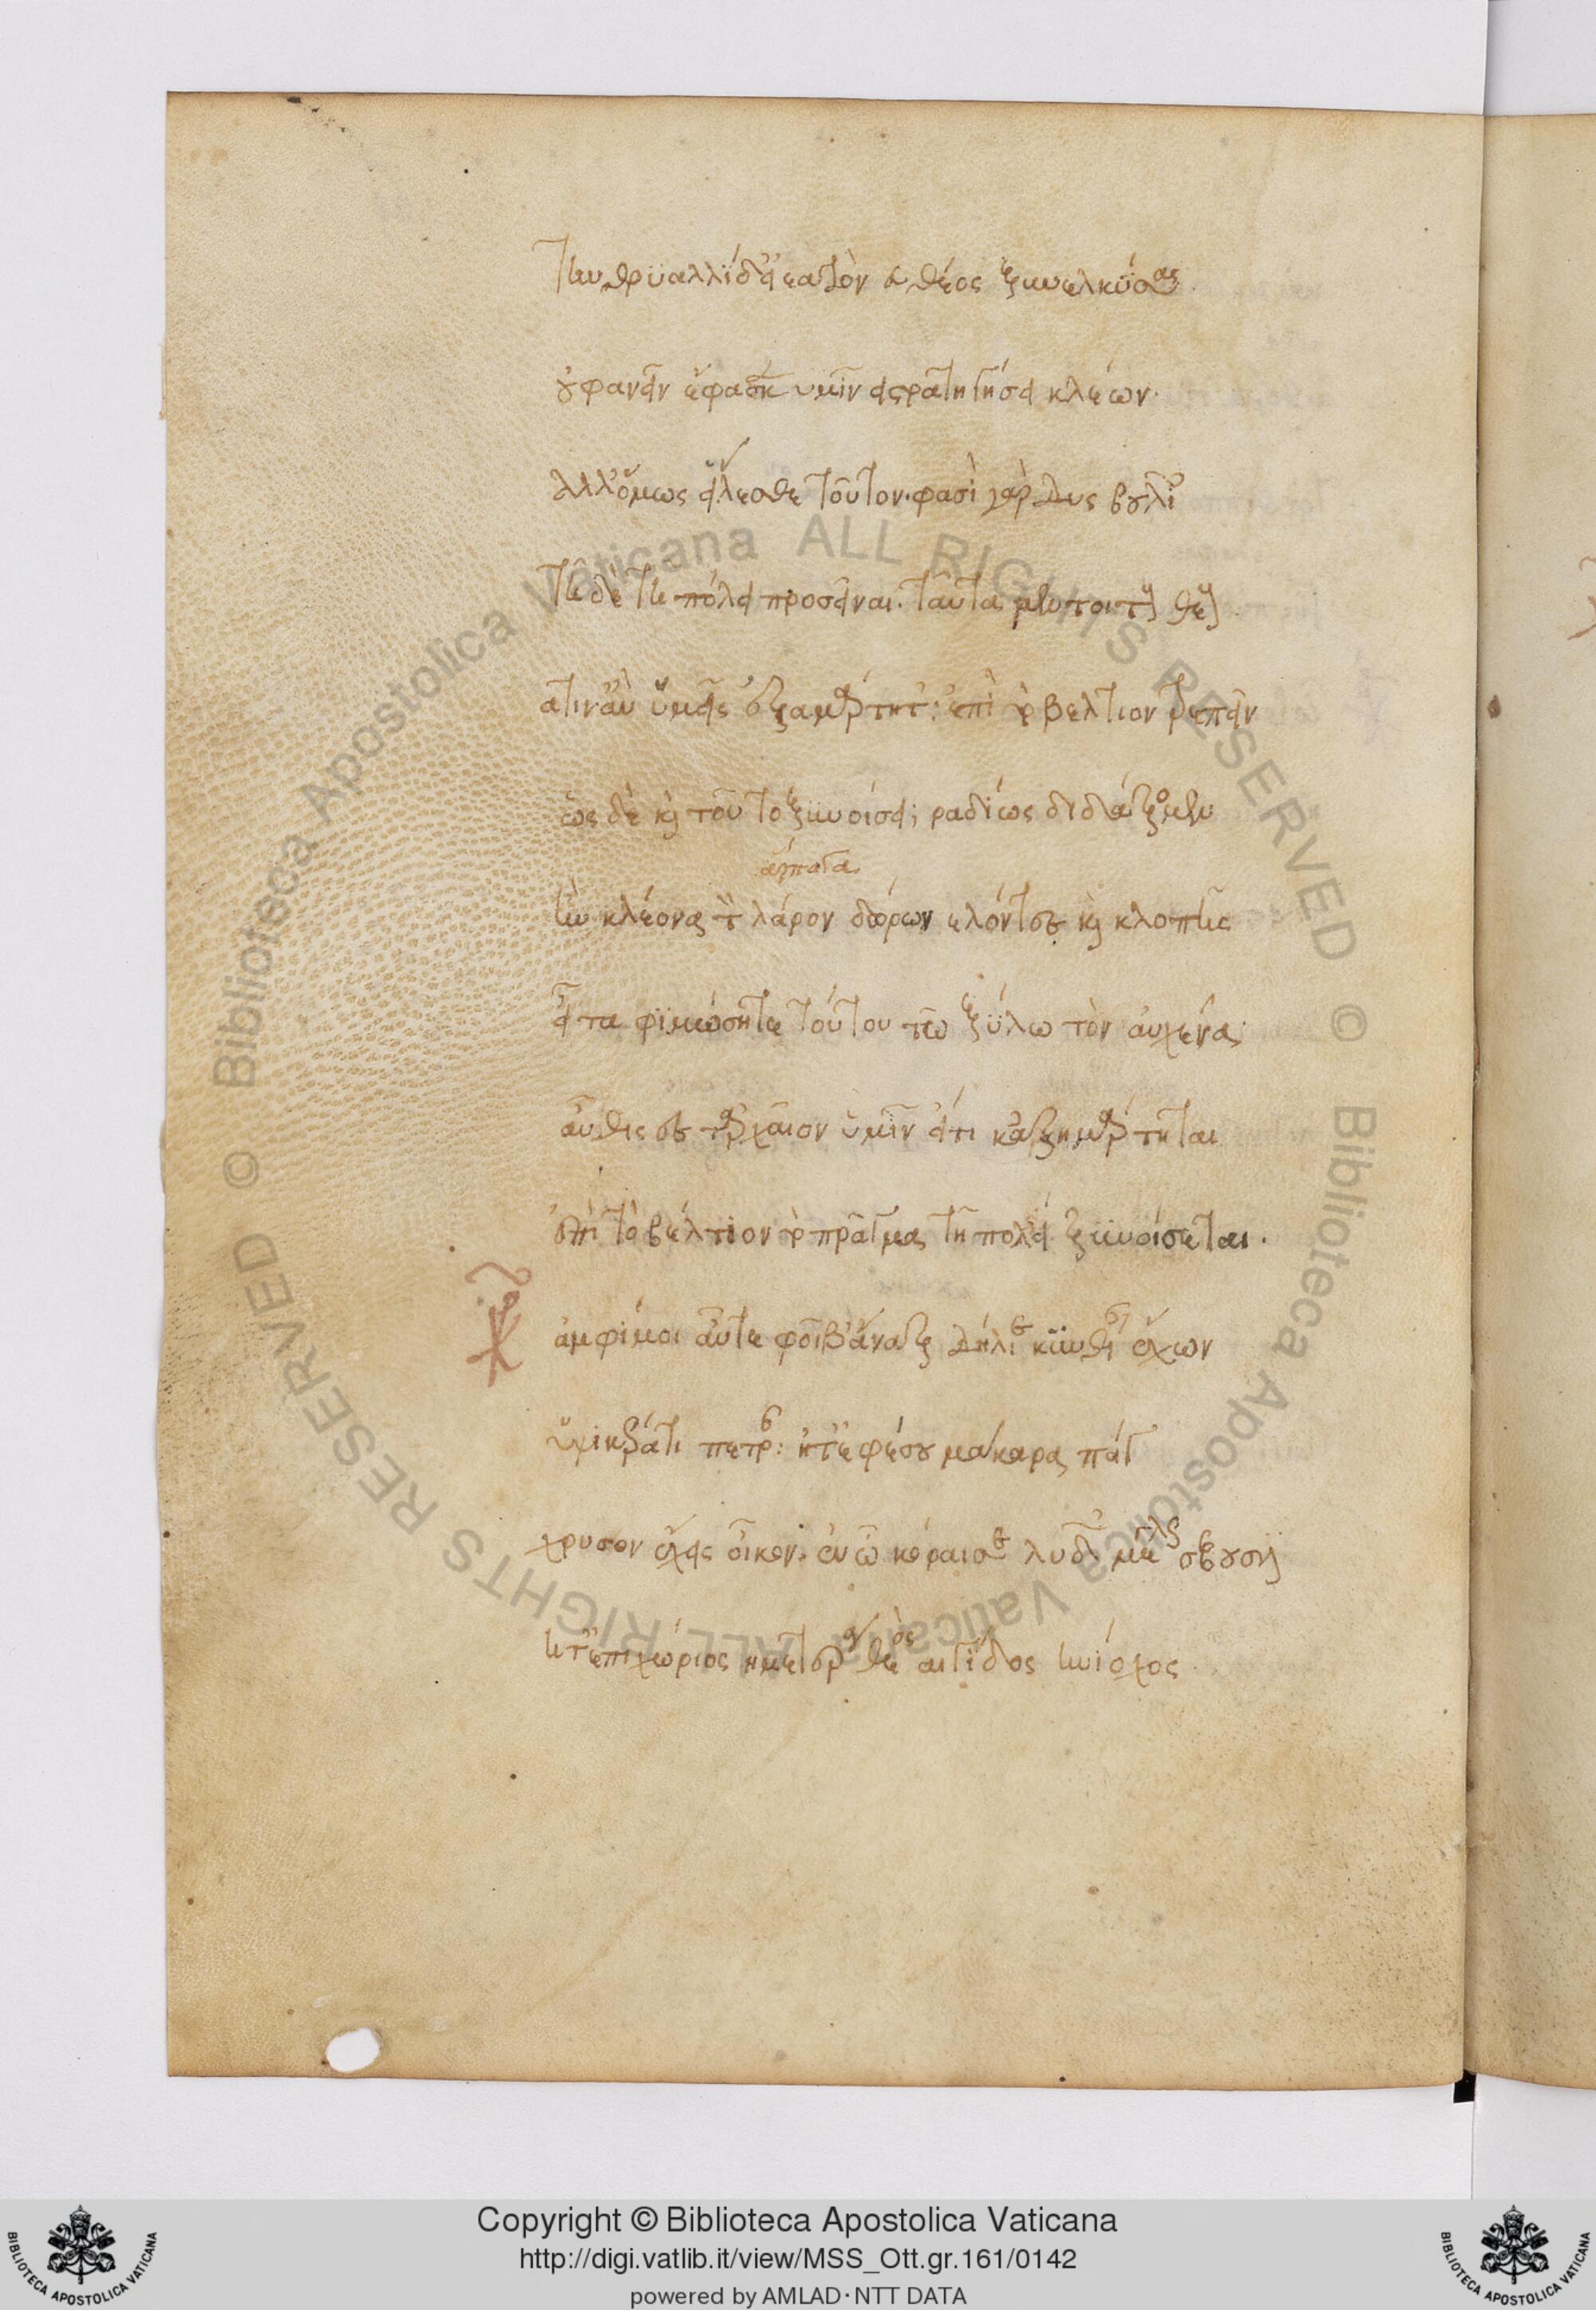 τὴν θρυαλλίδ' εἰς ἑαυτὸν εὐθέως ξυνελκύσας
οὐ φανεῖν ἔφασκεν ὑμῖν εἰ στρατηγήσει κλέων·
ἀλλ' ὅμως εἵλεσθε τοῦτον· φασὶ γὰρ δυσβουλίαν
τῇδε τῇ πόλει προσεῖναι. ταῦτα μέντοι τοὺς θεοὺς
ἅττιν' ἂν ὑμεῖς ἐξαμάρτητε: ἐπὶ τὸ βέλτιον τρέπειν
ὡς δὲ καὶ τοῦτο ξυνοίσει; ῥαδίως διδάξομεν
ἁρπαγα
ἢν κλέωνα τὸν λάρον δώρων ἑλόντες καὶ κλοπῆς
εἶτα φιμώσητε τούτου τῷ ξύλῳ τὸν αὐχένα·
αὖθις ἐς τἀρχαῖον ὑμῖν εἴ τι κἀξημάρτηται
ἐπὶ τὸ βέλτιον τὸ πρᾶγμα τῇ πόλει ξυνοίσεται.
ἀμφί μοι αὖτε φοῖβ' ἄναξ δήλιε κυνθίαν ἔχων
ὑψικέρατα πέτραν: ἥ τ' ἐφέσου μάκαιρα πάγ
χρυσον ἔχεις οἶκον· ἐν ᾧ κόραι σε λυδῶν μεγάλως σέβουσιν
ἥ τ' ἐπιχώριος ἡμετέρα θεὸς αἰγίδος ἡνίοχος
Copyright © Biblioteca Apostolica Vaticana
http://digi.vatlib.it/view/MSS_Ott.gr.161/0142
powered by AMLAD·NTT DATA
BIBLIOTECA APOSTOLICA VATICANA
BIBLIOTECA APOSTOLICA VATICANA
© Biblioteca Apostolica Vaticana ALL RIGHTS RESERVED © Biblioteca Apostolica Vaticana ALL RIGHTS RESERVED